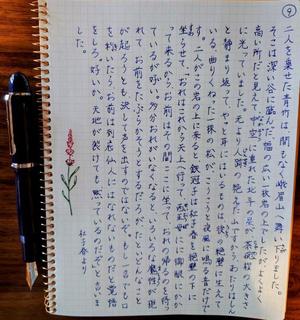 ⑨
二人を乗せた青竹は、間もなく峨眉山へ舞い下りました。
そこは深い谷に臨んだ、幅の広い一枚岩の上でしたが、よくよく
高い所だと見えて、中空に垂れた北斗の星が、茶碗程の大きさ
に光っていました。元より人跡の絶えた山ですから、あたりはしん
と静まり返って、やっと耳にはいるものは、後の絶壁に生えて
いる、曲りくねった一株の松が、こうこうと夜風に鳴る音だけで
す。二人がこの岩の上に来ると、鉄冠子は杜子春を絶壁の下に
坐らせて、「おれはこれから天上へ行って、西王母に御眼にかか
って来るから、お前はその間ここに坐って、おれの帰るのを待っ
ているが好い。多分おれがいなくなると、いろいろな魔性が現
れて、お前をたぶらかそうとするだろうが、たといどんなこと
が起ろうとも、決して声を出すのではないぞ。もし一言でも口
を利いたら、お前は到底仙人にはなれないものだと覚悟
をしろ。好いか。天地が裂けても、黙っているのだぞ」と言いま
した。
杜子春より